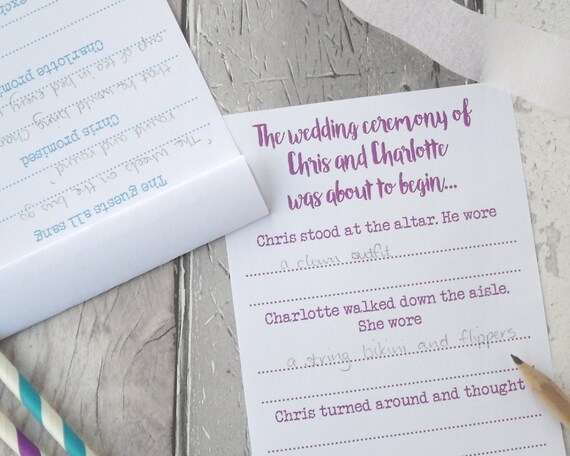 The wedding ceremony of
Chris and Charlotte
was about to begin...
Chris stood at the altar. He wore
a clown outfit
Charlotte walked down the aisle.
She wore
a string bikini and flippers
Chris turned around and thought
The guests all sang
"The wheels on the bus go
round and round
Chris promised
that he would bring
Charlotte
cup of tea in bed every